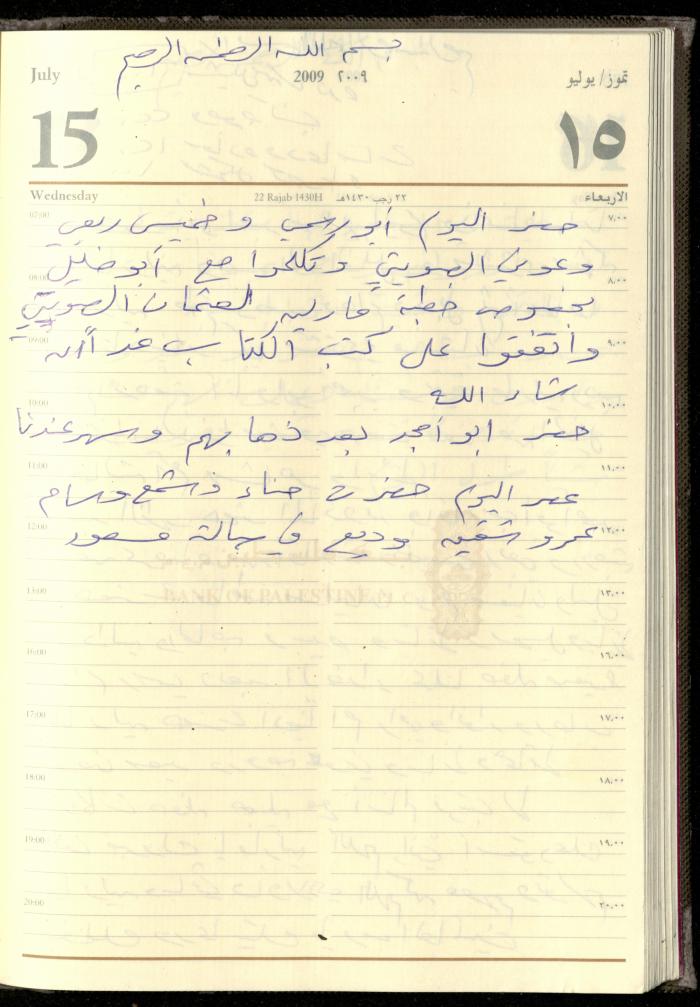 بسم الله الرحمن الرحيم
July 2009 ٢٠٠٩ تموز/يوليو
15 ١٥
Wednesday 22 Rajab 1430H ٢٢ رجب ١٤٣٠هـ الاربعاء
07:00 ٧,٠٠
حضر اليوم أبو رسمي وخميس ربعي
وعوني الصويتي وتكلموا مع أبو خليل
08:00 ٨,٠٠
بخصوص خطبة ماريه لعثمان الصويتي
09:00 ٩,٠٠
واتفقوا على كتب الكتاب غداً ان
شاء الله
10:00 ١٠,٠٠
حضر ابو أمجد بعد ذهابهم وسهر عندنا
11:00 ١١,٠٠
عصر اليوم حضرت هناء
12:00 ١٢,٠٠
عمرو شقيه وديع في مسعود
BANK OF PALESTINE
13:00 ١٣,٠٠
16:00 ١٦,٠٠
17:00 ١٧,٠٠
18:00 ١٨,٠٠
19:00 ١٩,٠٠
20:00 ٢٠,٠٠